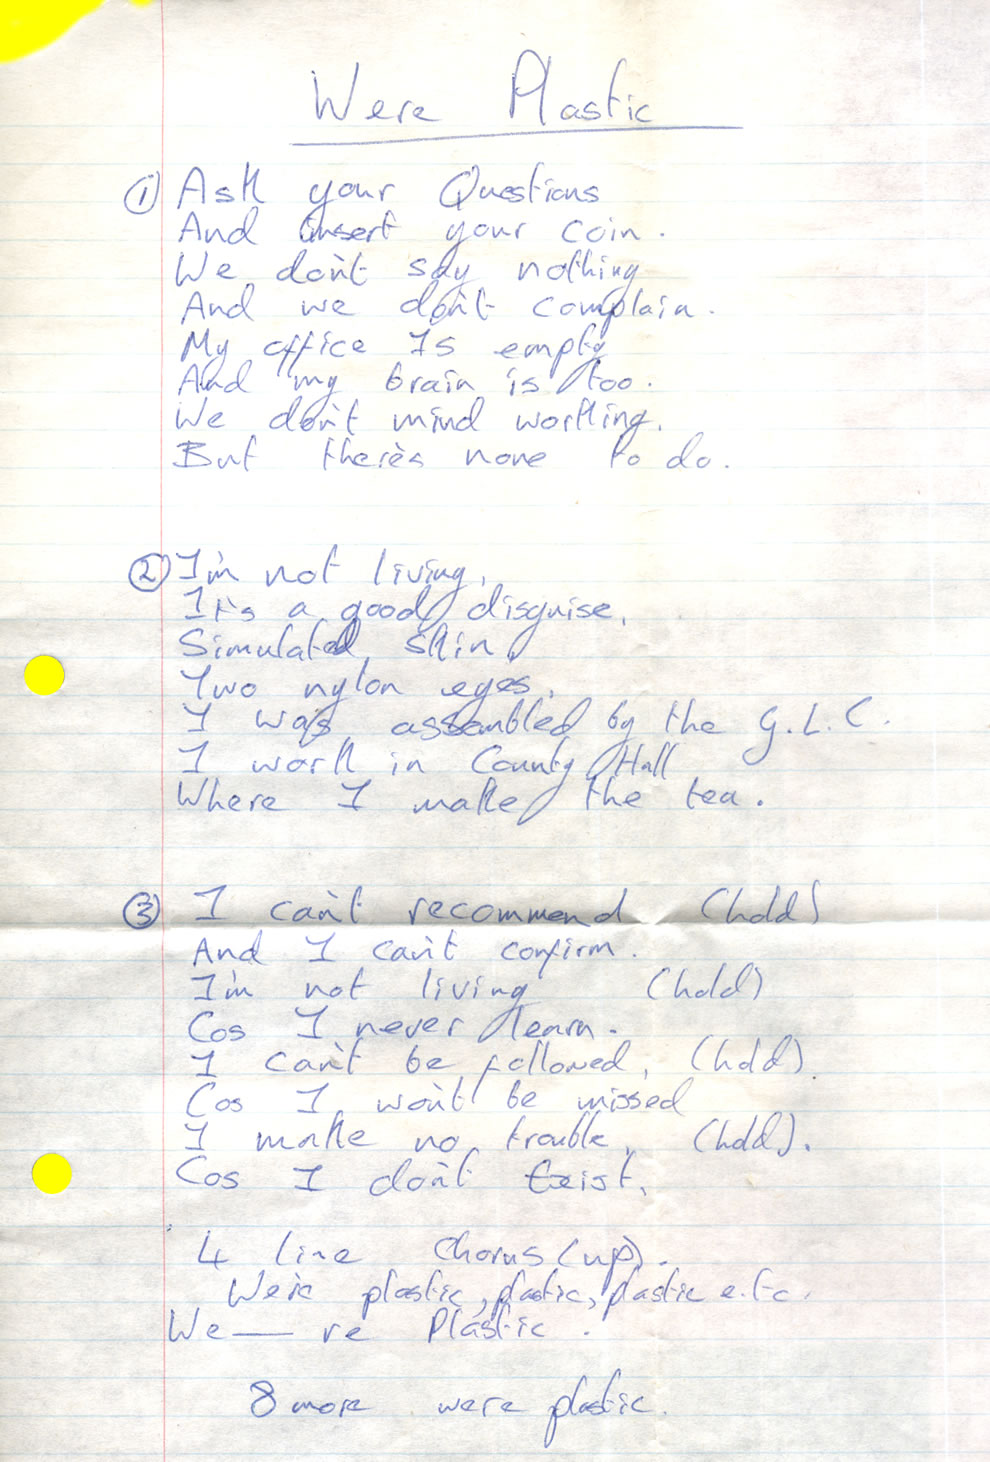 Were Plastic
① Ask your Questions
And insert your coin.
We don't say nothing
And we don't complain.
My office Is empty
And my brain is too.
We don't mind working.
But there's none to do.
② I'm not living,
It's a good disguise,
Simulated skin,
Two nylon eyes,
I was assembled by the G.L.C.
I work in County Hall
Where I make the tea.
③ I can't recommend (hold)
And I can't confirm.
I'm not living (hold)
Cos I never learn.
I can't be followed, (hold).
Cos I won't be missed
I make no trouble, (hold).
Cos I don't Exist,
4 line Chorus (up).
We're plastic, plastic, plastic e.t.c.
We — re Plastic.
8 more were plastic.